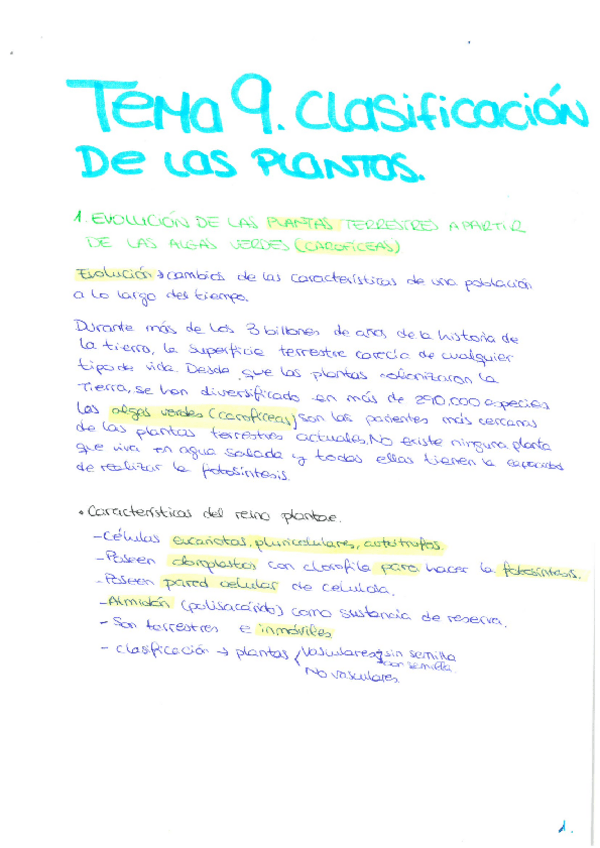 TEMA 9. Clasificación
De las plantas.
1. EVOLUCIÓN DE LAS PLANTAS TERRESTRES A PARTIR
DE LAS ALGAS VERDES (CAROFÍCEAS)
Evolución → cambios de las características de una población
a lo largo del tiempo.
Durante más de los 3 billones de años, de la historia de
la tierra, la superficie terrestre carecía de cualquier
tipo de vida. Desde que las plantas colonizaron la
Tierra, se han diversificado en más de 290.000 especies
Las algas verdes (carofíceas) son los parientes más cercanos
de las plantas terrestres actuales. No existe ninguna planta
que viva en agua salada y todas ellas tienen la capacidad
de realizar la fotosíntesis.
• Características del reino plantae.
- Células eucariotas, pluricelulares, autótrofas.
- Poseen cloroplastos con clorofila para hacer la fotosíntesis.
- Poseen pared celular de celulola.
- Almidón (polisacárido) como sustancia de reserva.
- Son terrestres e inmóviles
- clasificación → plantas { Vasculares → sin semilla
→ con semilla.
No vasculares.
1.